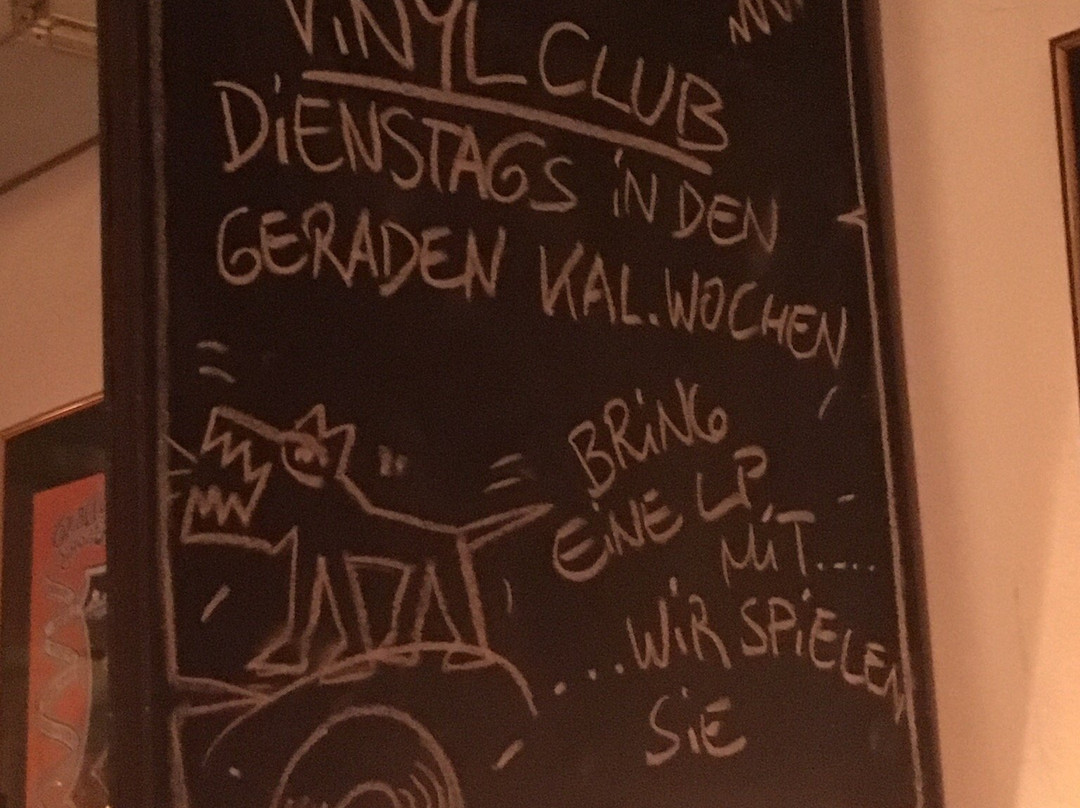 ViNYL CLUB
DiENSTAGS iN DEN
GERADEN KAL.WOCHEN
BRiNG
EiNE LP
MiT....
...WiR SPiELEN
SiE